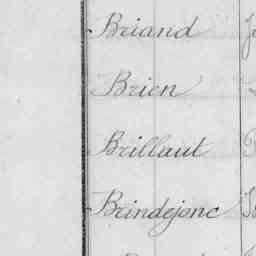 Briand
Brien
Brillaut
Brindejonc